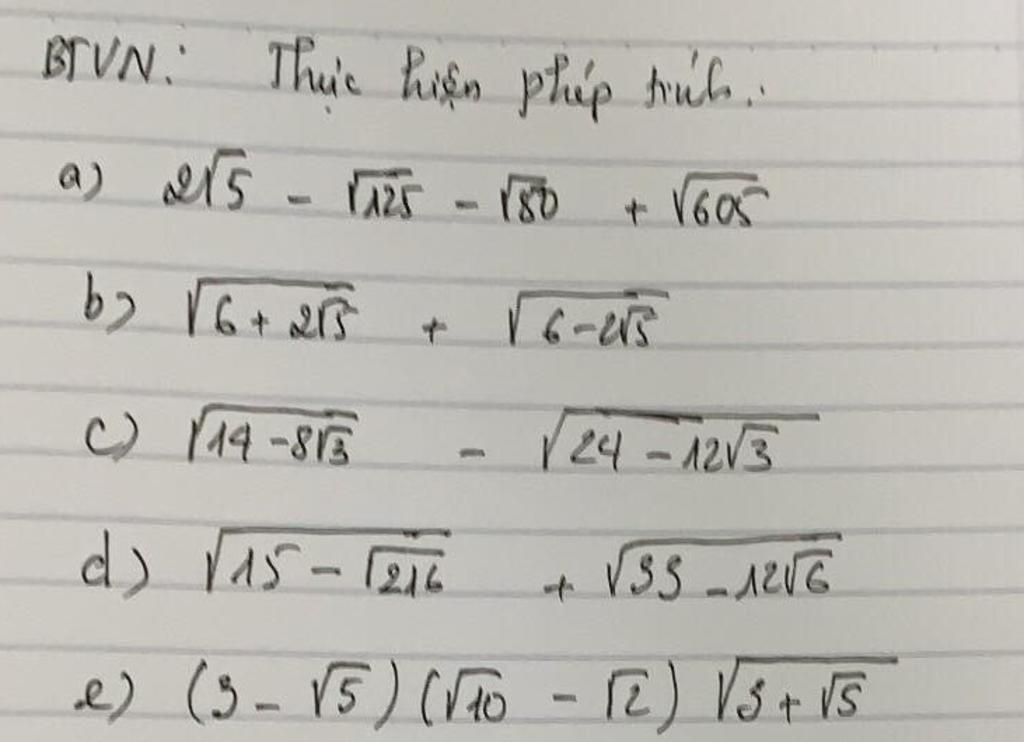 BTVN: Thực hiện phép tính:
a) 2√5 - √125 - √80 + √605
b) √(6 + 2√5) + √(6 - 2√5)
c) √(14 - 8√3) - √(24 - 12√3)
d) √(15 - √216) + √(33 - 12√6)
e) (3 - √5)(√10 - √2) √(3 + √5)